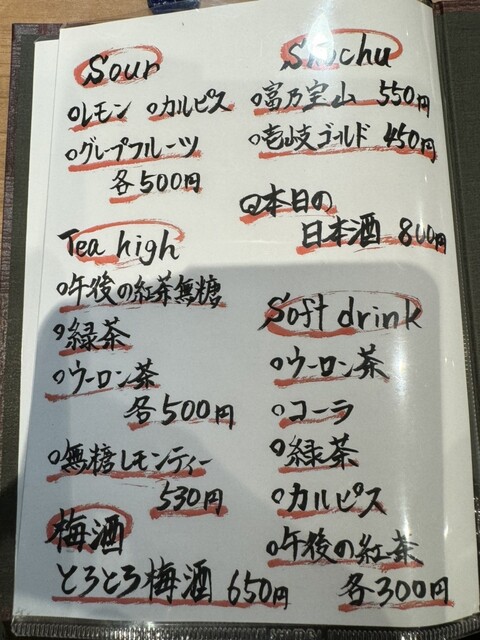 Sour
○レモン ○カルピス
○グレープフルーツ
各500円
Tea high
○午後の紅茶無糖
○緑茶
○ウーロン茶
各500円
○無糖レモンティー
530円
梅酒
とろとろ梅酒 650円
Shochu
○富乃宝山 550円
○壱岐ゴールド 450円
○本日の
日本酒 800円
Soft drink
○ウーロン茶
○コーラ
○緑茶
○カルピス
○午後の紅茶
各300円